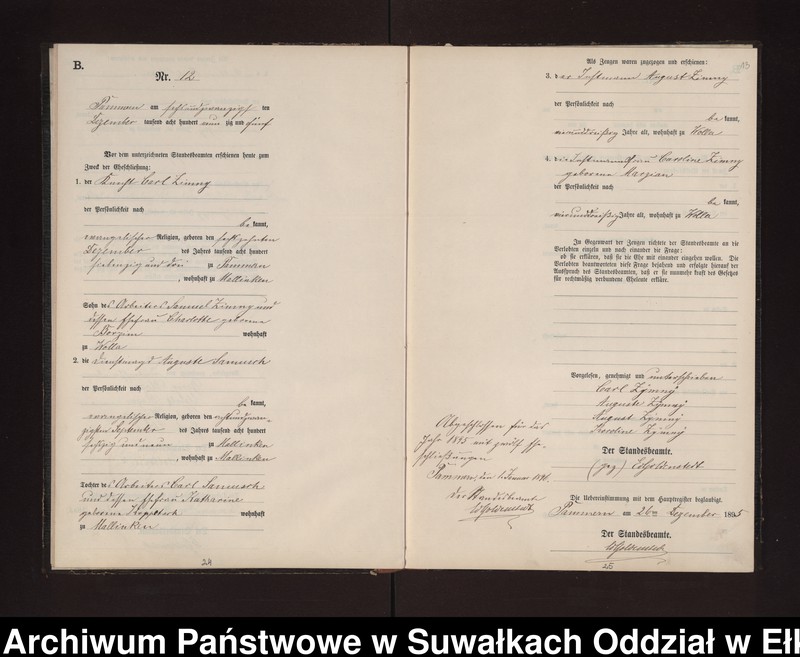 B.
Nr. 12
am sechsundzwanzigsten ten
Dezember tausend acht hundert neunzig und fünf
Vor dem unterzeichneten Standesbeamten erschienen heute zum
Zweck der Eheschließung:
1. der Carl Zimny
der Persönlichkeit nach
bekannt,
evangelischer Religion, geboren den sechszehnten
Dezember des Jahres tausend acht hundert
siebenzig und drei zu
, wohnhaft zu Mallinken
Sohn des Arbeiters Samuel Zimny und
dessen Ehefrau Charlotte geborene
wohnhaft
zu Wolla
2. die Dienstmagd Auguste
der Persönlichkeit nach
bekannt,
evangelischer Religion, geboren den einundzwan-
zigsten September des Jahres tausend acht hundert
sechszig und neun zu Mallinken
, wohnhaft zu Mallinken
Tochter des Arbeiters Carl
und dessen Ehefrau Katharine
geborene wohnhaft
zu Mallinken
24
Als Zeugen waren zugezogen und erschienen:
3. der Instmann August Zimny
der Persönlichkeit nach
bekannt,
vierunddreißig Jahre alt, wohnhaft zu Wolla
4. die Instmannsfrau Caroline Zimny
geborene Marzian
der Persönlichkeit nach
bekannt,
vierunddreißig Jahre alt, wohnhaft zu Wolla
In Gegenwart der Zeugen richtete der Standesbeamte an die
Verlobten einzeln und nach einander die Frage:
ob sie erklären, daß sie die Ehe mit einander eingehen wollen. Die
Verlobten beantworteten diese Frage bejahend und erfolgte hierauf der
Ausspruch des Standesbeamten, daß er sie nunmehr kraft des Gesetzes
für rechtmäßig verbundene Eheleute erkläre.
Vorgelesen, genehmigt und unterschrieben
Carl Zÿmnÿ
Auguste Zÿmnÿ
August Zÿmnÿ
Karoline Zÿmnÿ
Der Standesbeamte.
(gez)
Abgeschlossen für das
Jahr 1895 mit zwölf Ehe-
schließungen
den 1. Januar 1896.
Der Standesbeamte
Die Uebereinstimmung mit dem Hauptregister beglaubigt.
am 26ten Dezember 1895
Der Standesbeamte.
25
Archiwum Państwowe w Suwałkach Oddział w Ełk